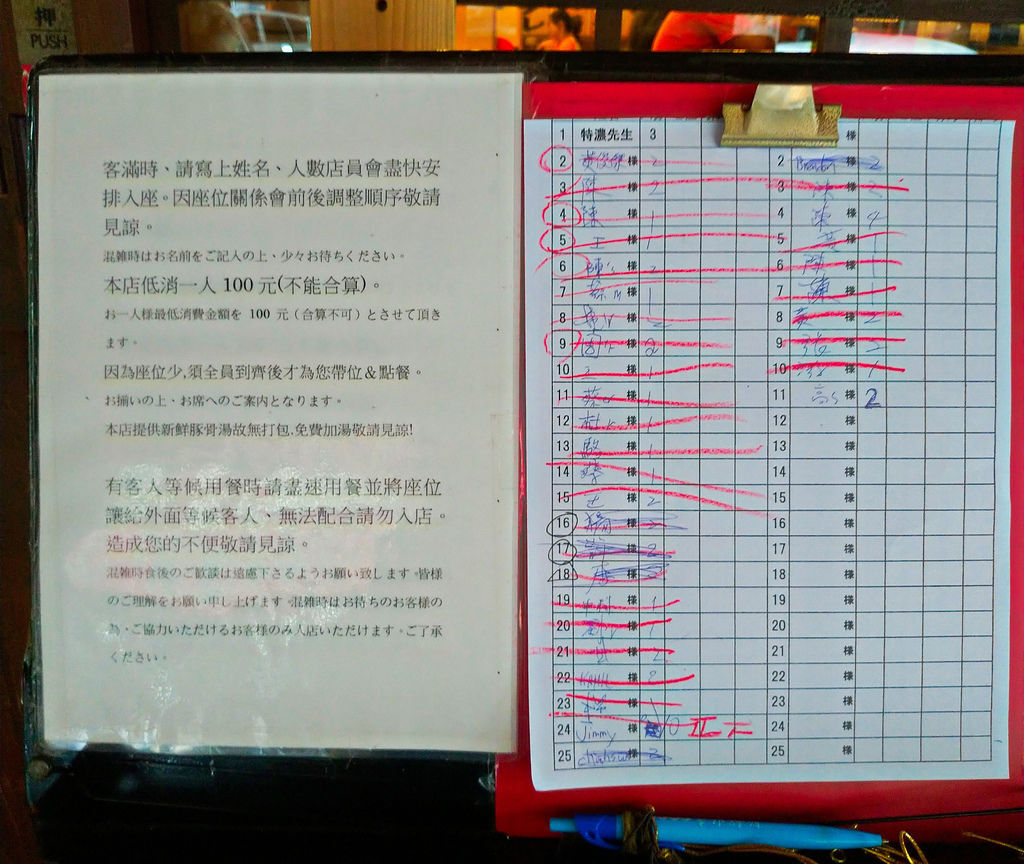 押
PUSH
客滿時、請寫上姓名、人數店員會盡快安
排入座。因座位關係會前後調整順序敬請
見諒。
混雑時はお名前をご記入の上、少々お待ちください。
本店低消一人 100 元(不能合算)。
お一人様最低消費金額を 100 元（合算不可）とさせて頂き
ます。
因為座位少,須全員到齊後才為您帶位&點餐。
お揃いの上、お席へのご案内となります。
本店提供新鮮豚骨湯故無打包,免費加湯敬請見諒!
有客人等候用餐時請盡速用餐並將座位
讓給外面等候客人、無法配合請勿入店。
造成您的不便敬請見諒。
混雑時食後のご歓談は遠慮下さるようお願い致します。皆様
のご理解をお願い申し上げます。混雑時はお待ちのお客様の
為、ご協力いただけるお客様のみ入店いただけます。ご了承
ください。
1 特濃先生 3
2 様 2
3 陳 様 2
4 陳 様 1
5 王 様 1
6 陳's 様 2
7 蔡 様 1
8 様 2
9 様 2
10 王 様 1
11 蔡 様 1
12 杜 様 1
13 駱 様 1
14 様 1
15 様 2
16 楊 様 2
17 様 2
18 唐 様 3
19 様 1
20 劉 様 1
21 様 2
22 様 2
23 様 1
24 Jimmy 様 0
25 様 2
様
2 Brandon 様 2
3 陳 様 2
4 陳 様 4
5 様 1
6 陳 様 1
7 陳 様 1
8 黃 様 2
9 張 様 2
10 様 1
11 高's 様 2
12 様
13 様
14 様
15 様
16 様
17 様
18 様
19 様
20 様
21 様
22 様
23 様
24 様
25 様